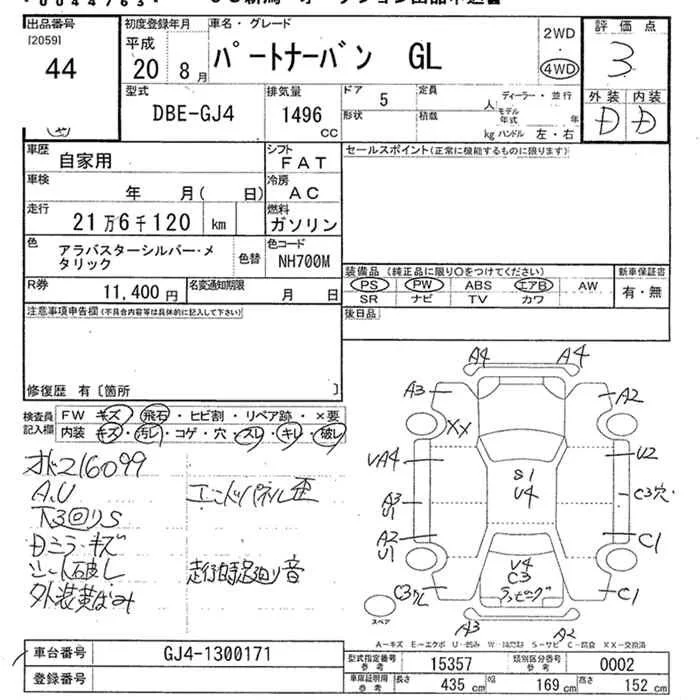 出品番号 初度登録年月 車名・グレード 2WD 評価点
[2059] 平成
44 20 年 8 月 パートナーバン GL 4WD 3
型式 排気量 ドア 定員 ディーラー・並行 外装 内装
DBE-GJ4 1496 cc 5 人 モデル年式 年 D D
形状 積載 kg ハンドル 左・右
車歴 自家用 シフト FAT セールスポイント(正常に機能するものに限ります)
車検 年 月( 日) 冷房 AC
走行 21万6千120 km 燃料 ガソリン
色 アラバスターシルバー・メタリック 色替 色コード NH700M
装備品 (純正品に限り○をつけてください) 新車保証書
PS PW ABS エアB AW 有・無
SR ナビ TV カワ
R券 11,400 円 名変通知期限 月 日
後日品
注意事項申告欄(不具合内容等は具体的に記入して下さい)
修復歴 有〔箇所 〕
検査員記入欄 FW キズ・飛石・ヒビ割・リペア跡・×要
内装 キズ・汚レ・コゲ・穴・スレ・キレ・破レ
メーター216099
A.U エンドパネル歪
下3回りS
Dミラーキズ
シート破レ 走行時足廻り音
外装黄ばみ
A4 A4
A3 A2
XX
VA4 U2
S1
U4
A3 U1 C3穴
A2 U1 C1
V4
C3
ラッピング
C3 C1
スペア A3 A2
A-キズ E-エクボ U-凹み W-補修跡 S-サビ C-腐食 XX-交換済
車台番号 GJ4-1300171
登録番号
型式指定番号 参考 15357 類別区分番号 参考 0002
車庫証明用 参考 長さ 435 cm 幅 169 cm 高さ 152 cm